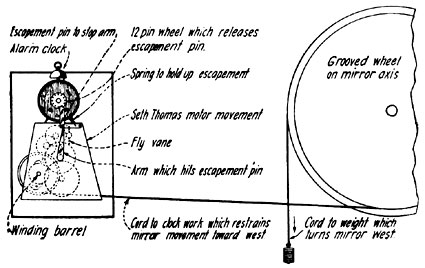 Escapement pin to stop arm,
Alarm clock
12 pin wheel which releases
escapement pin.
Spring to hold up escapement
Seth Thomas motor movement
Fly vane
Arm which hits escapement pin
Winding barrel
Cord to clock work which restrains
mirror movement toward west
Grooved wheel
on mirror axis
Cord to weight which
turns mirror west